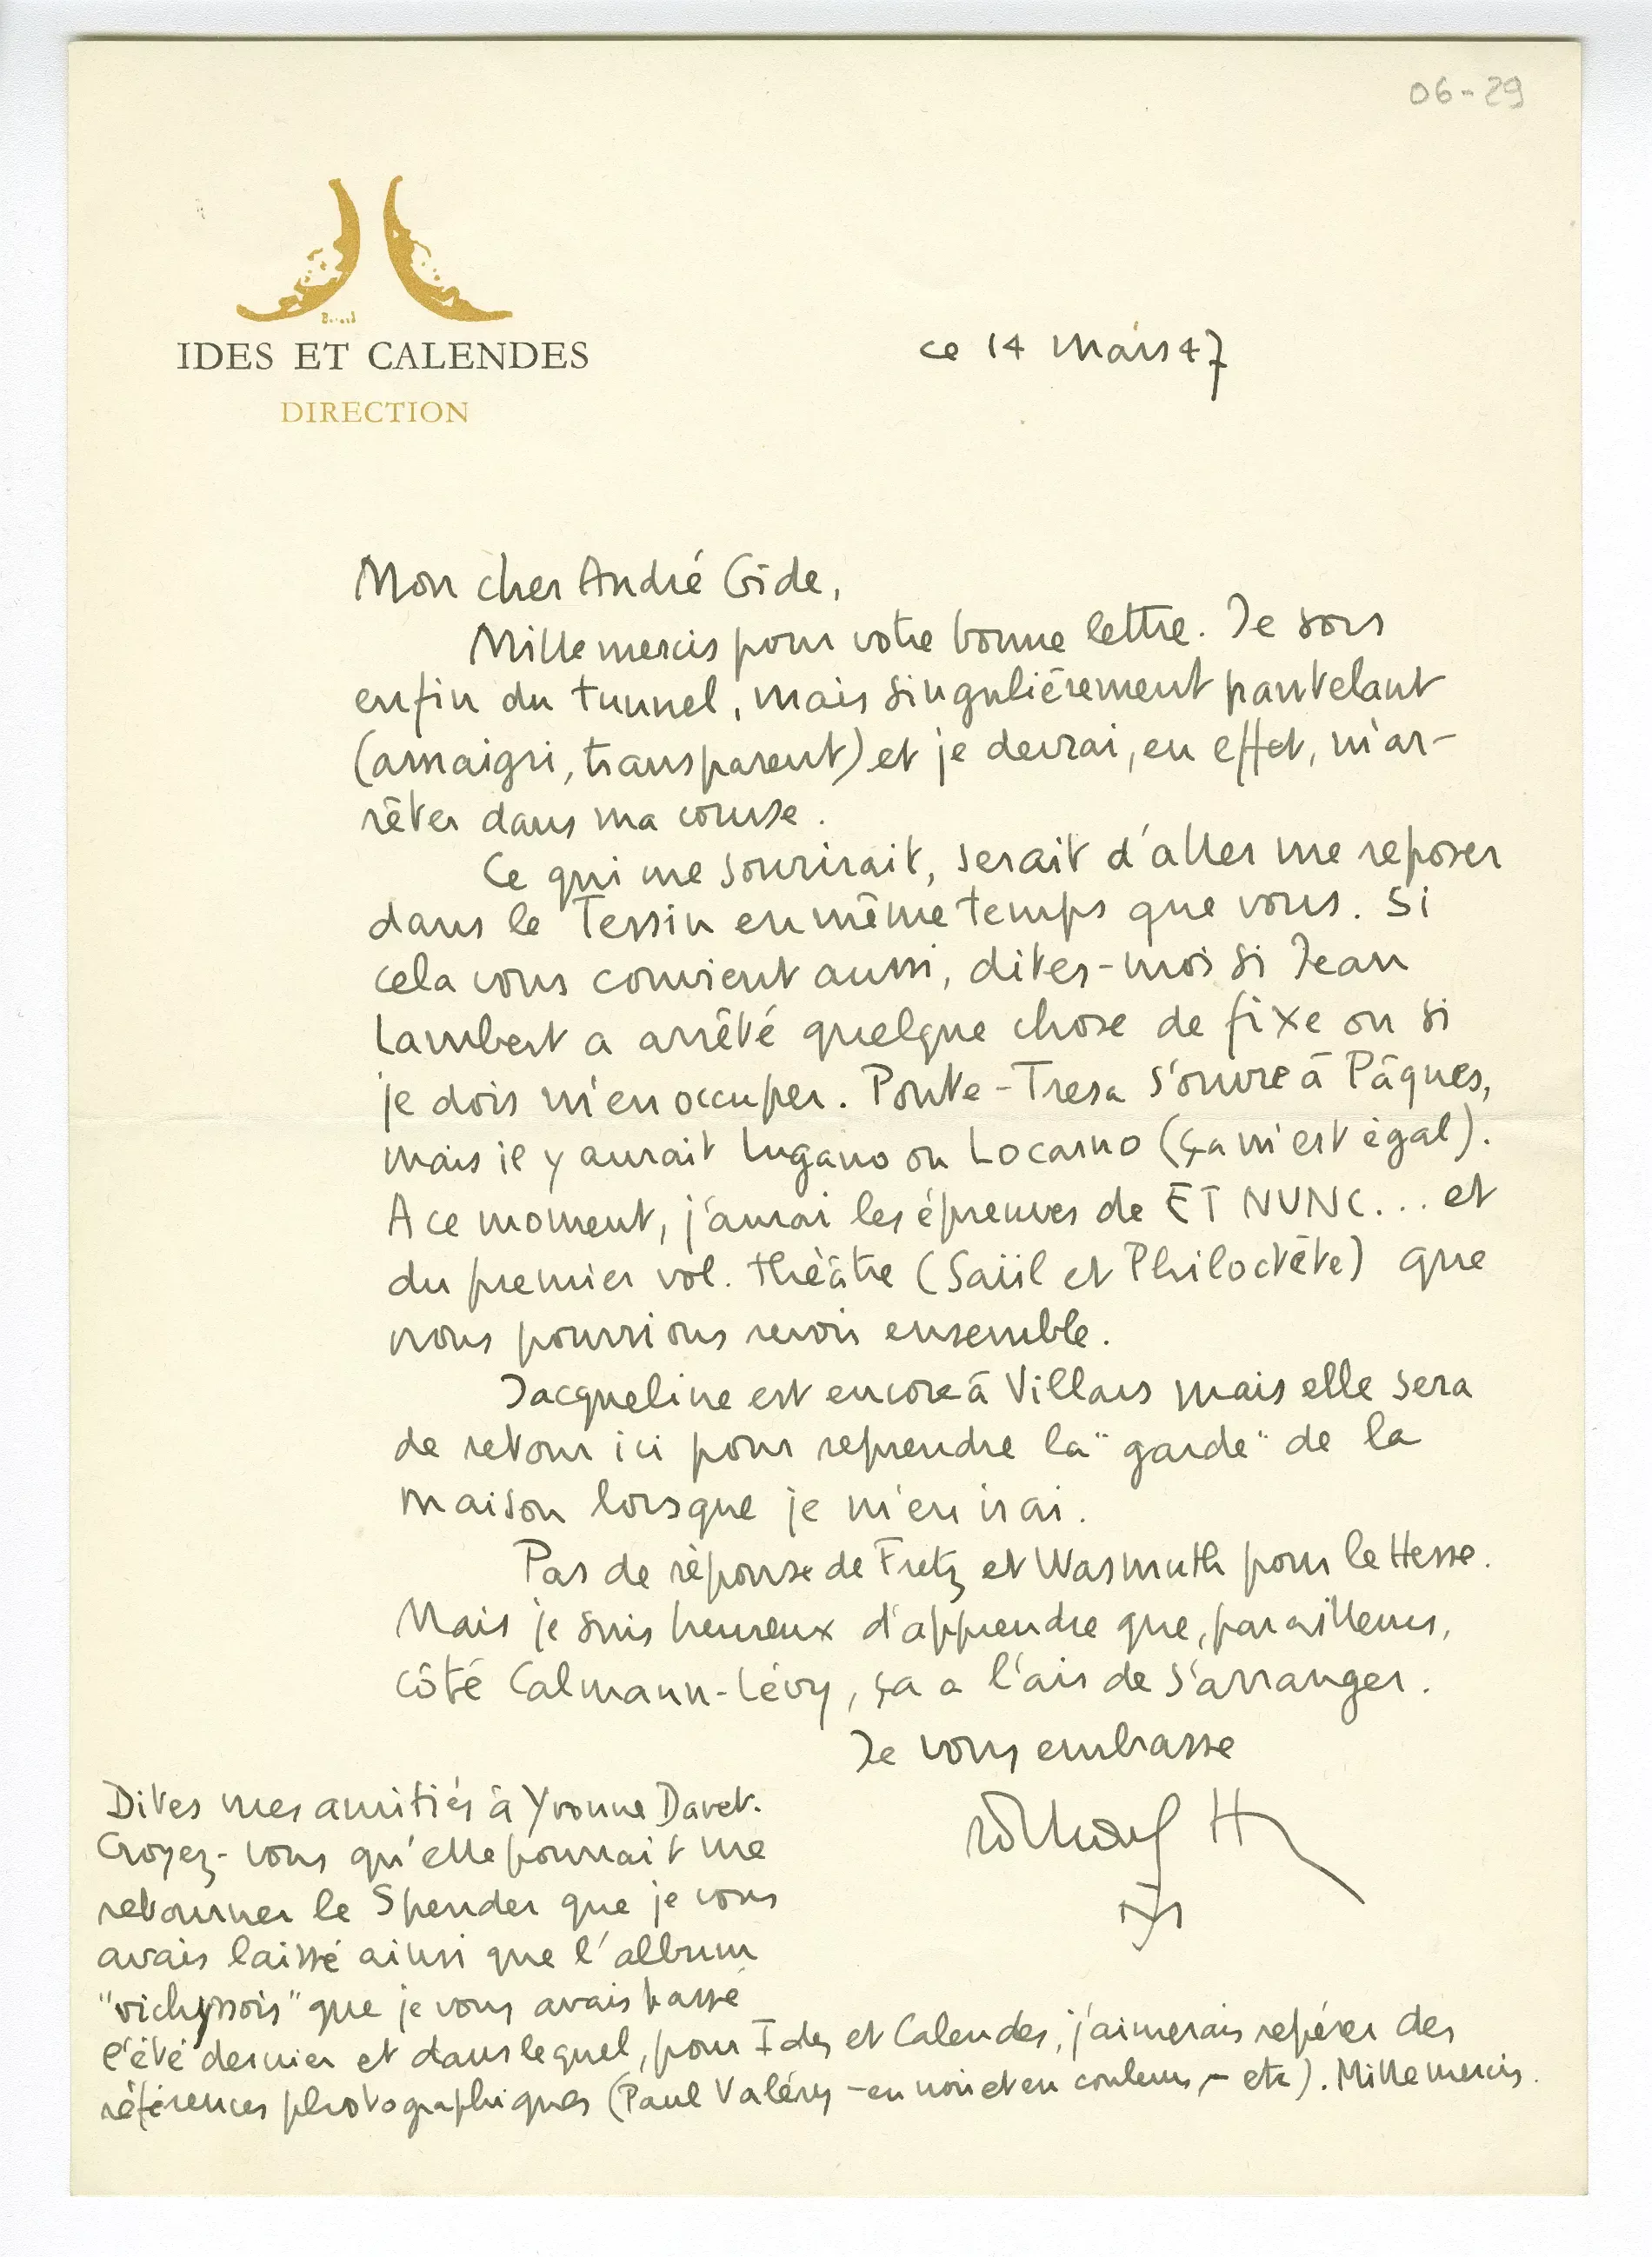 06-29
IDES ET CALENDES
DIRECTION
ce 14 mars 47
Mon cher André Gide,
Mille mercis pour votre bonne lettre. Je sors
enfin du tunnel, mais singulièrement pantelant
(amaigri, transparent) et je devrai, en effet, m'ar-
rêter dans ma course.
Ce qui me sourirait, serait d'aller me reposer
dans le Tessin en même temps que vous. Si
cela vous convient aussi, dites-moi si Jean
Lambert a arrêté quelque chose de fixe ou si
je dois m'en occuper. Ponte-Tresa s'ouvre à Pâques,
mais il y aurait Lugano ou Locarno (ça m'est égal).
A ce moment, j'aurai les épreuves de ET NUNC... et
du premier vol. théâtre (Saül et Philoctète) que
nous pourrions revoir ensemble.
Jacqueline est encore à Villars mais elle sera
de retour ici pour reprendre la "garde" de la
maison lorsque je m'en irai.
Pas de réponse de Fretz et Wasmuth pour le Hesse.
Mais je suis heureux d'apprendre que, par ailleurs,
côté Calmann-Lévy, ça a l'air de s'arranger.
Je vous embrasse
Richard H
Dites mes amitiés à Yvonne Davet.
Croyez-vous qu'elle pourrait me
retourner le Spender que je vous
avais laissé ainsi que l'album
"vichyssois" que je vous avais passé
l'été dernier et dans lequel, pour Ides et Calendes, j'aimerais repérer des
références photographiques (Paul Valéry - en noir et en couleurs, - etc). Mille mercis.